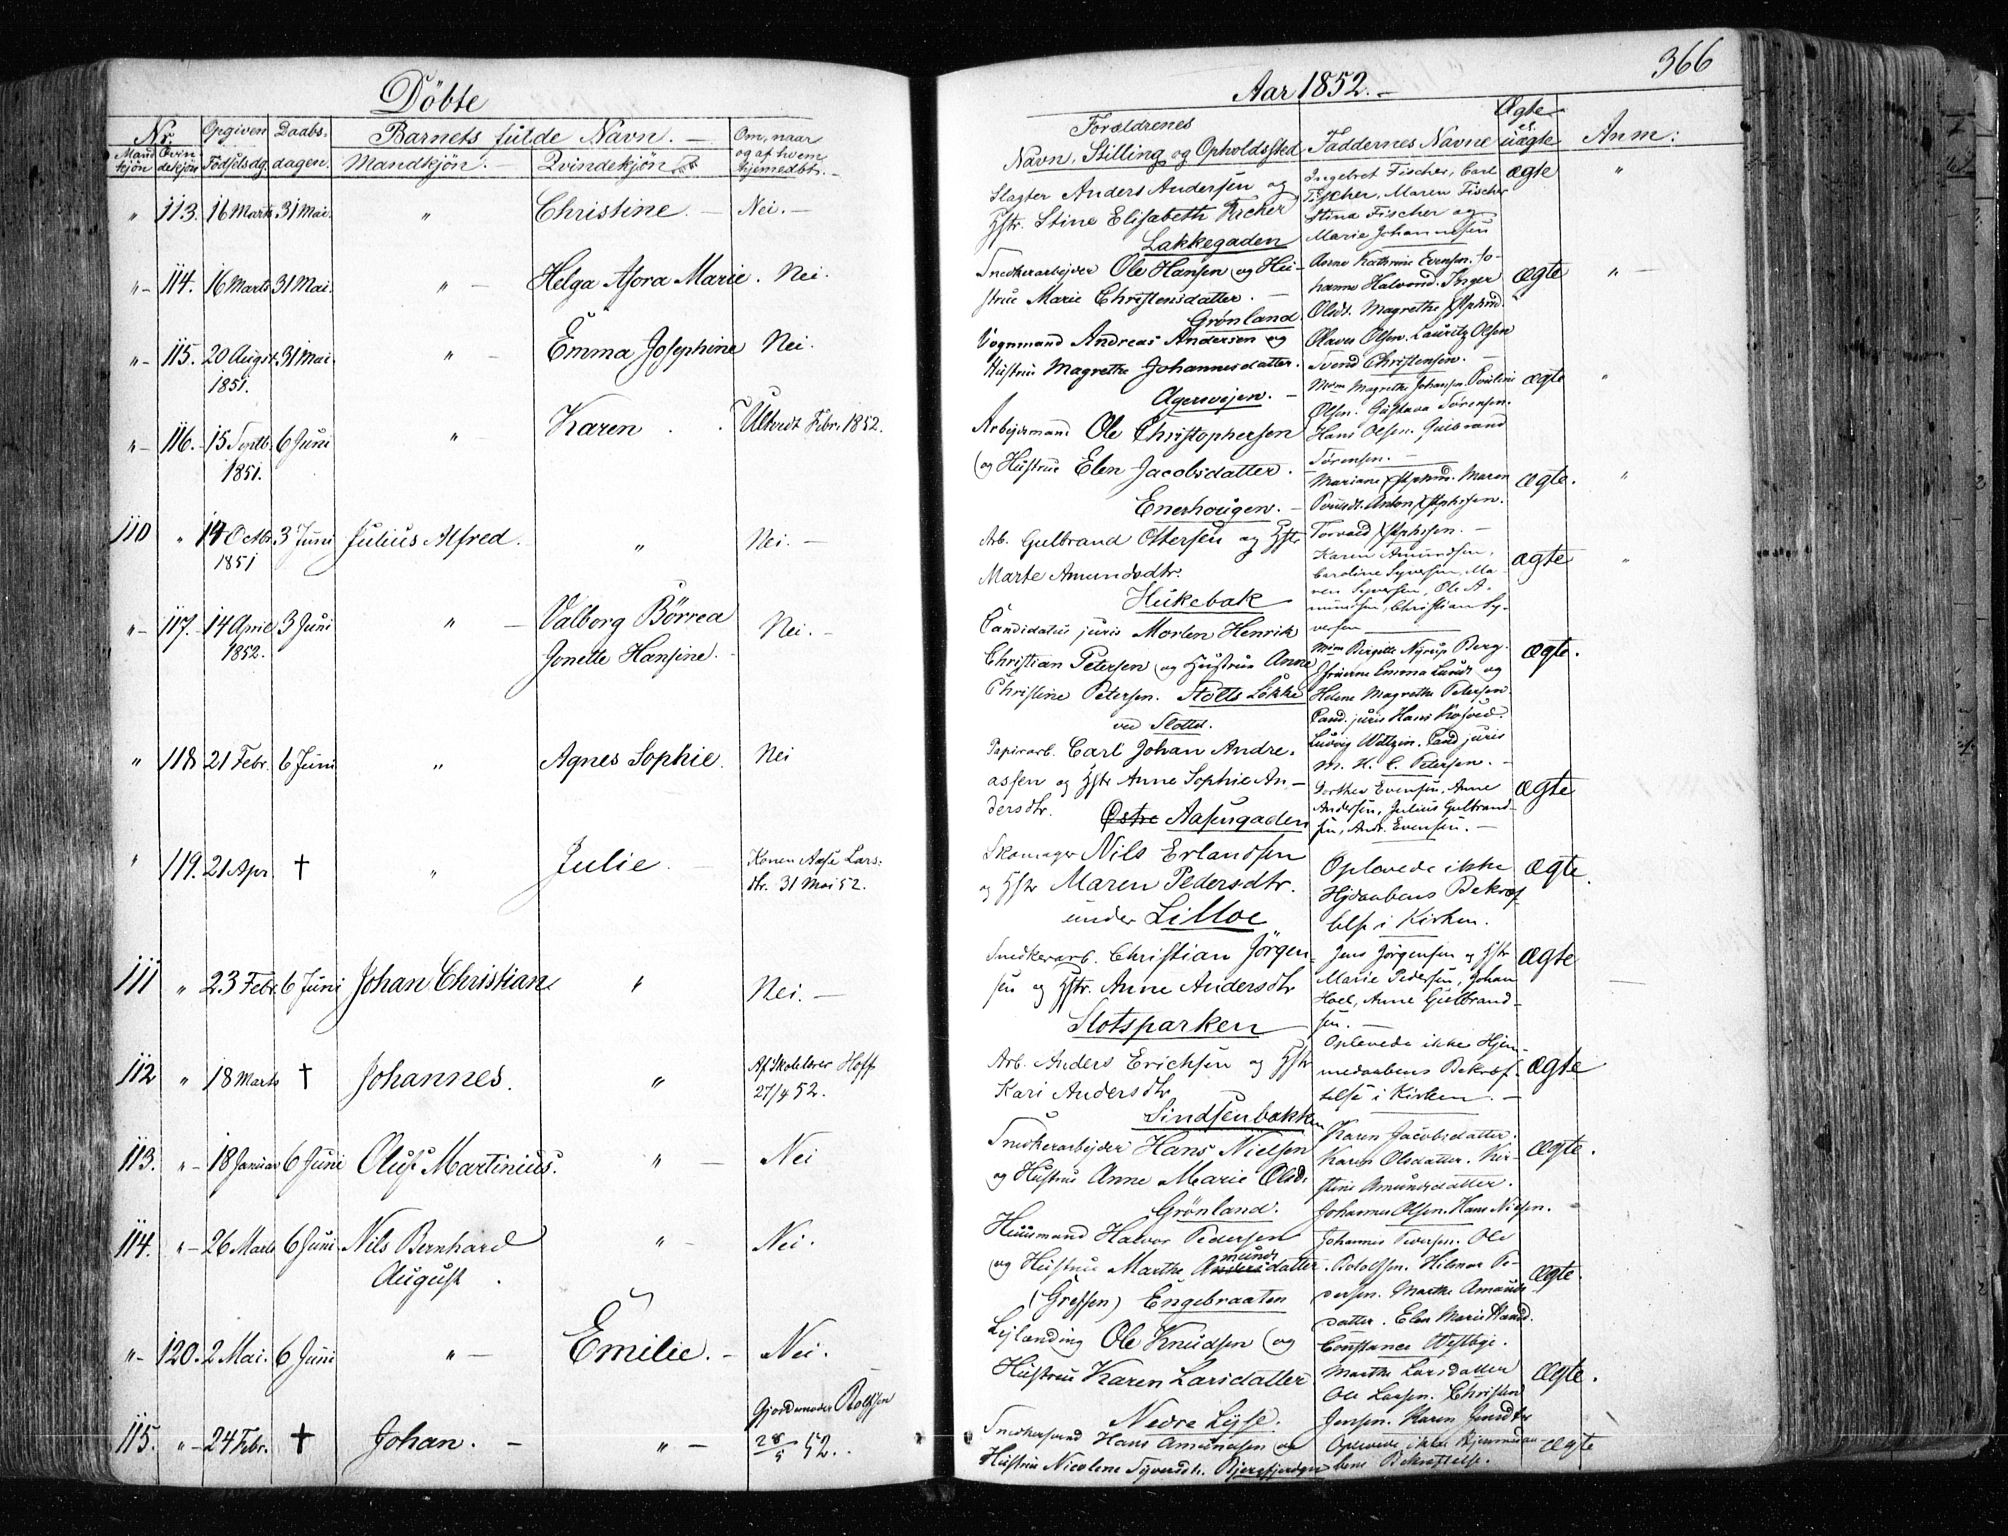 Döbte
Nr.
Opgiven
Daabs-
Barnets fulde Navn. —
Om, naar
og af hvem
hjemmedbt.
Mand
kjön
Qvin
dekjön
Födselsdg.
dagen.
Mandkjön.
Qvindekjön
" 113. 16 Marts 31 Mai. " Christine. — Nei. —
"- 114. 16 Marts 31 Mai. " — Helga Asora Marie. Nei.
"- 115. 20 Augst. 31 Mai. " — Emma Josephine Nei.
1851.
"- 116. 15 Septb. 6 Juni " Karen Febr. 1852.
1851.
110 " 14 Octbr. 3 Juni Julius Alfred. " Nei. —
1851
"- 117. 14 April 3 Juni " — Valborg Börrea Nei. —
1852. Jonette Hansine.
" 118 21 Febr. 6 Juni " Agnes Sophie. Nei
" 119. 21 Apr. † " Julie. — Konen Aase Lars-
dtr. 31 Mai 52.
111 " 23 Febr. 6 Juni Johan Christian " Nei. —
112 " 18 Marts † Johannes. " Af Skolelærer Hoff
27/4 52.
113. "- 18 Januar 6 Juni Oluf Martinius. " — Nei
114. "- 26 Marts 6 Juni Nils Bernhard " — Nei.
August.
"- 120. 2 Mai. 6 Juni " — Emilie. — Nei.
Gjordemoder
115. "- 24 Febr. † Johan. — " — 28/5 52.
366
Aar 1852. —
Forældrenes
Navn, Stilling og Opholdssted
Faddernes Navne
Ægte
el.
uægte
Anm:
Slagter Anders Andersen og
Hstr. Stine Elisabeth Ficher
Lakkegaden
Ingebret Fischer, Carl
Fischer, Maren Fischer
Stina Fischer og
Marie Johannesen
ægte "
Snedkerarbejder Ole Hansen og Hu-
strue Marie Christensdatter. —
Grønland
Anne Kathrine Evensen. Jo-
hanne Halvorsd. Inger
Olsdt. Magrethe
ægte " —
Vognmand Andreas Andersen og
Hustrue Magrethe Johannesdatter.
Agersvejen. —
Olaves Olsen. Lauritz Olsen
Svend Christensen. —
Mdm Magrethe Johansen. Pouline
Olsen. Gustava Sörensen.
ægte "
Arbejdsmand Ole Christophersen
og Hustrue Elen Jacobsdatter.
Enerhougen. —
Hans Olsen. Gulbrand
Sörensen. —
Mariane Maren
Torvald
ægte. "
Arb. Gulbrand Ottersen og Hstr
Marte Amundsdtr.
Hukebak
Karen Amundsen,
Caroline Syversen, Ma-
ren Syversen, Ole A-
mundsen, Christian Sy-
versen
ægte "
Candidatus juris Morten Henrik
Christian Petersen og Hustrue Anne
Christine Petersen. Stolts Løkke
ved Slottet.
Mdm Birgitte Nyrup Berg.
Emma Lund og
Helene Magrethe Petersen
Cand. juris Hans
Ludvig Cand juris
M. H. C. Petersen. —
ægte.
Papirarb. Carl Johan Andre-
assen og Hstr Anne Sophie An-
dersdtr.
Østre Aasengaden
Dorthea Evensen, Anne
Andersen, Julius Gulbrand-
sen, Andr. Evensen. —
ægte
Skomager Nils Erlandsen
og Hstr Maren Pedersdtr.
under Lilloe
Oplevede ikke
Hjdaabens Bekræf-
telse i Kirken.
ægte.
Snedkerarb. Christian Jörgen-
sen og Hstr. Anne Andersdtr
Slotsparken
Jens Jörgensen og Hstr
Marie Pedersen, Johan
Hoel, Anne Gulbrand-
sen. —
ægte
Arb. Anders Erichsen og Hstr
Kari Andersdtr
Sindsenbakken
Oplevede ikke Hjem-
medaabens Bekræf-
telse i Kirken. —
ægte
Snedkerarbejder Hans Nielsen
og Hustrue Anne Marie Olsd.
Grønland.
Karen Jacobsdatter.
Karen Olsdatter. Kir-
stine Amundsdatter.
Johannes Olsen. Hans Nielsen.
ægte.
Huusmand Halvor Pedersen
munds
og Hustrue Marthe Andersdatter.
(Grefsen) Engebraaten
Johannes Pedersen. Ole
Hilmar Pe-
dersen. Marthe Amunds-
datter. Elen Marie
Constance
ægte.
Lejlænding Ole Knudsen og
Hustrue Karen Larsdatter
Nedre Lyse.
Marthe Larsdatter
Ole Larsen. Christen
Jensen. Karen Jensdtr
ægte.
Snedkersvend Hans Amundsen og
Hustrue Nicoline Syversdt.
Oplevede ikke Hjemmedaa-
bens Bekræftelse.
ægte